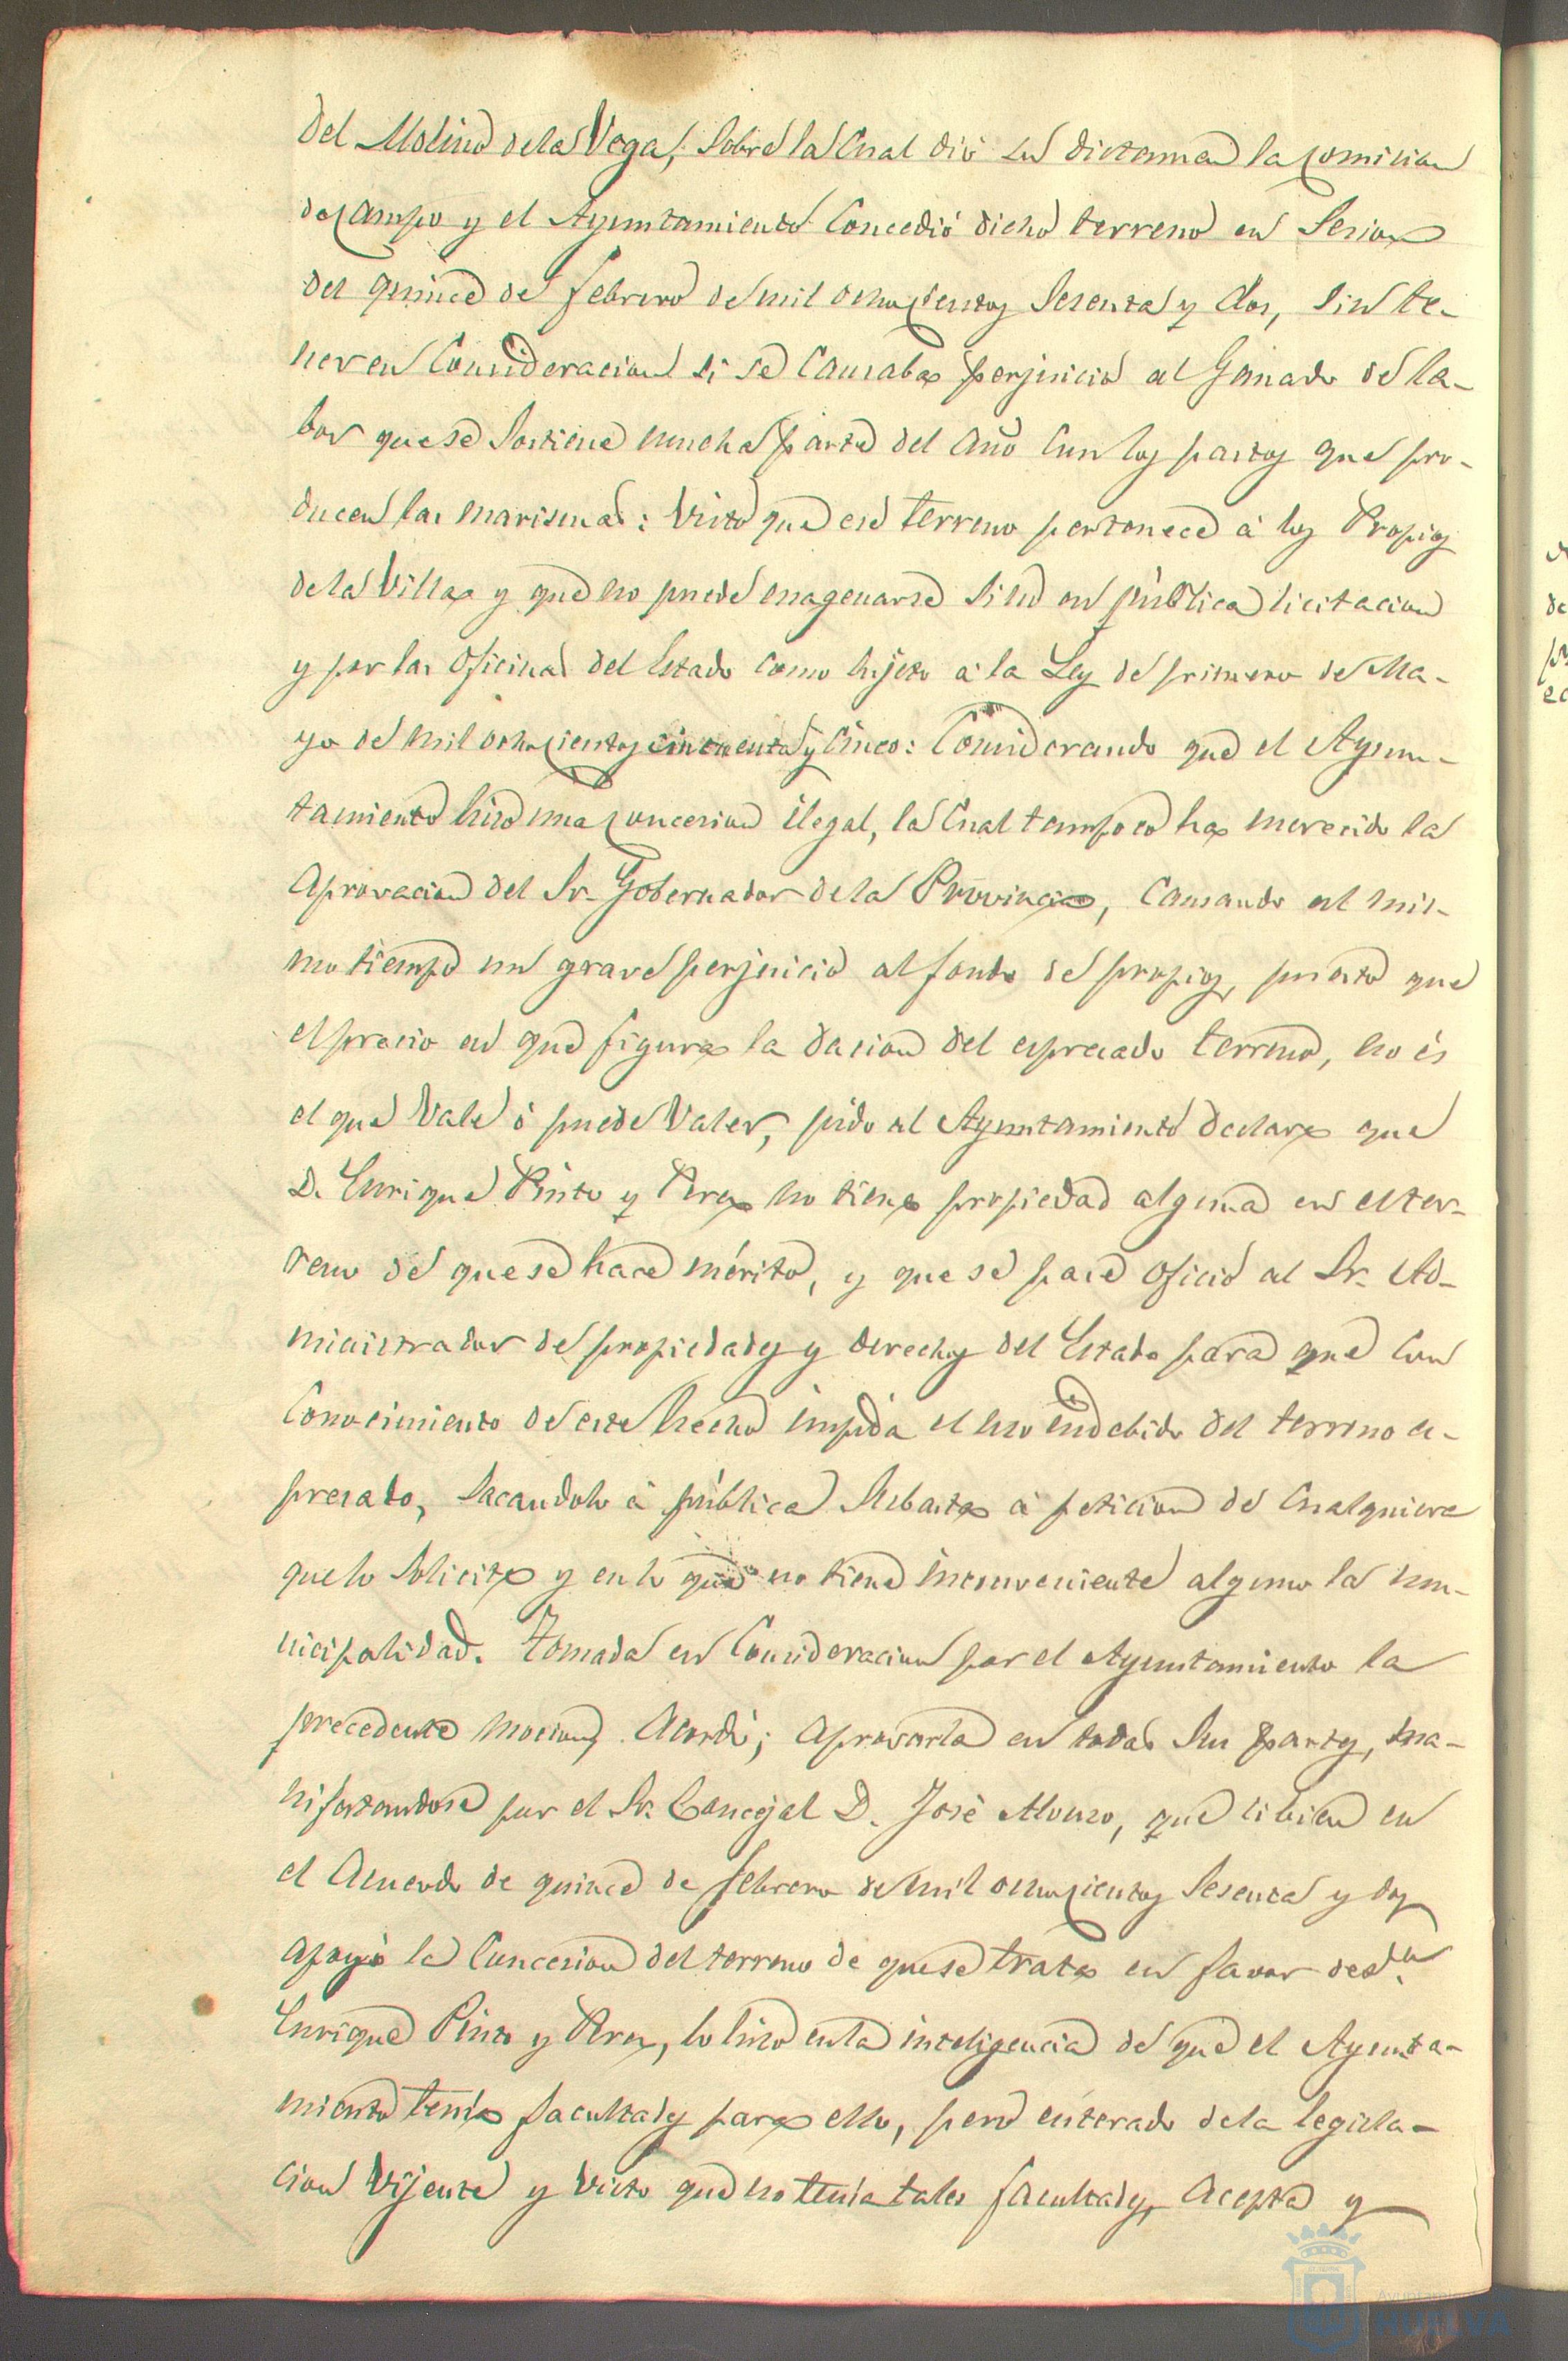 del Molino de la Vega, sobre la cual dió su dictamen la comision
de campo y el Ayuntamiento concedió dicho terreno en sesion
del quince de febrero de mil ochocientos sesenta y dos, sin te-
ner en consideracion si se causaba perjuicio al ganado de la-
bor que se sostiene mucha parte del año con los pastos que pro-
ducen las marismas: Visto que ese terreno pertenece á los Propios
de la Villa y que no puede enagenarse sino en pública licitacion
y por las oficinas del Estado como sujeto á la Ley de primero de Ma-
yo de mil ochocientos cincuenta y cinco: Considerando que el Ayun-
tamiento hizo una concesion ilegal, la cual tampoco ha merecido la
aprovacion del Sr. Gobernador de la Provincia, causando al mis-
mo tiempo un grave perjuicio al fondo de propios, puesto que
el precio en que figura la dacion del espresado terreno, no és
el que vale ó puede valer, pido al Ayuntamiento declare que
D. Enrique Pinto y Perez no tiene propiedad alguna en el ter-
reno de que se hace mérito, y que se pase oficio al Sr. Ad-
ministrador de propiedades y derechos del Estado para que con
conocimiento de este hecho impida el uso indebido del terreno es-
presado, sacandolo á pública subasta á peticion de cualquiera
que lo solicite y en lo que no tiene inconveniente alguno la mu-
nicipalidad. Tomada en consideracion por el Ayuntamiento la
precedente mocion, Acordó; aprovarla en todas sus partes, ma-
nifestandose por el Sr. Concejal D. José Alonso, que si bien en
el acuerdo de quince de febrero de mil ochocientos sesenta y dos
apoyó la concesion del terreno de que se trata en favor de Dn.
Enrique Pinto y Perez, lo hizo en la inteligencia de que el Ayunta-
miento tenía facultades para ello, pero enterado de la legisla-
cion vijente y visto que no tenia tales facultades, acepta y
Ayuntamiento
HUELVA